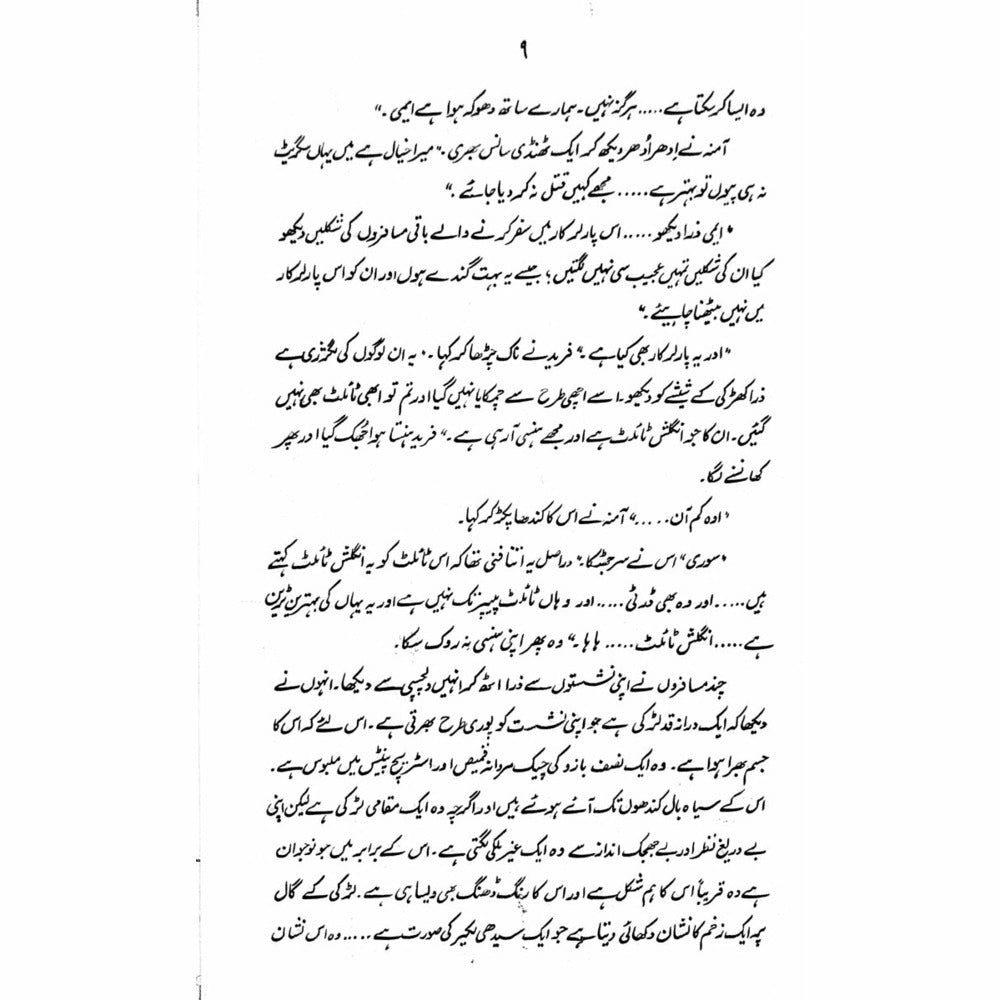 ۹
وہ ایسا کر سکتا ہے..... ہرگز نہیں۔ ہمارے ساتھ دھوکہ ہوا ہے ایمی۔"
آمنہ نے اِدھر اُدھر دیکھ کر ایک ٹھنڈی سانس بھری۔ "میرا خیال ہے میں یہاں سگریٹ
نہ ہی پیوں تو بہتر ہے..... مجھے کہیں قتل نہ کر دیا جائے۔"
"ایمی ذرا دیکھو..... اس پارلر کار میں سفر کرنے والے باقی مسافروں کی شکلیں دیکھو
کیا ان کی شکلیں تمہیں عجیب سی نہیں لگتیں؛ جیسے یہ بہت گندے ہوں اور ان کو اس پارلر کار
میں نہیں بیٹھنا چاہیئے۔"
"اور یہ پارلر کار بھی کیا ہے۔" فرید نے ناک چڑھا کر کہا۔ "یہ ان لوگوں کی لگژری ہے
ذرا کھڑکی کے شیشے کو دیکھو۔ اسے اچھی طرح سے چمکایا نہیں گیا اور تم تو ابھی ٹائلٹ بھی نہیں
گئیں۔ ان کا جو انگلش ٹائلٹ ہے اور مجھے ہنسی آ رہی ہے۔" فرید ہنستا ہوا جُھک گیا اور پھر
کھانسنے لگا۔
"اوہ کم آن....." آمنہ نے اس کا کندھا پکڑ کر کہا۔
"سوری" اس نے سر جھٹکا۔ "دراصل یہ اتنا فنی تھا کہ اس ٹائلٹ کو یہ انگلش ٹائلٹ کہتے
ہیں..... اور وہ بھی ڈرٹی..... اور وہاں ٹائلٹ پیپر تک نہیں ہے اور یہ یہاں کی بہترین ٹرین
ہے..... انگلش ٹائلٹ..... ہا ہا۔" وہ پھر اپنی ہنسی نہ روک سکا۔
چند مسافروں نے اپنی نشستوں سے ذرا اٹھ کر انہیں دلچسپی سے دیکھا۔ انہوں نے
دیکھا کہ ایک دراز قد لڑکی ہے جو اپنی نشست کو پوری طرح بھرتی ہے۔ اس لئے کہ اس کا
جسم بھرا ہوا ہے۔ وہ ایک نصف بازو کی چیک مردانہ قمیض اور اسٹریچ پینٹس میں ملبوس ہے۔
اس کے سیاہ بال کندھوں تک آئے ہوئے ہیں اور اگرچہ وہ ایک مقامی لڑکی ہے لیکن اپنی
بے دریغ نظر اور بے جھجک انداز سے وہ ایک غیر ملکی لگتی ہے۔ اس کے برابر میں جو نوجوان
ہے وہ قریباً اس کا ہم شکل ہے اور اس کا رنگ ڈھنگ بھی ویسا ہی ہے۔ لڑکی کے گال
پہ ایک زخم کا نشان دکھائی دیتا ہے جو ایک سیدھی لکیر کی صورت ہے..... وہ اس نشان